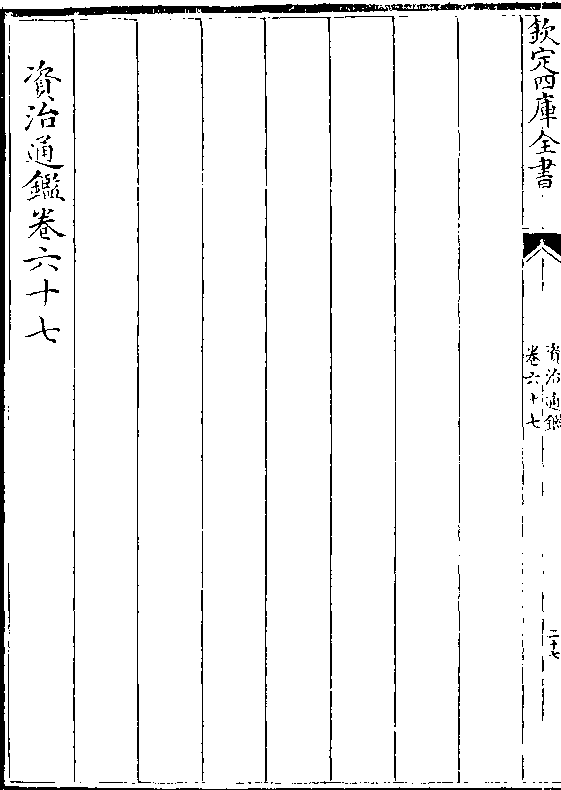 欽定四庫全書
資治通鑑
卷六十七
二十七
資治通鑑卷六十七